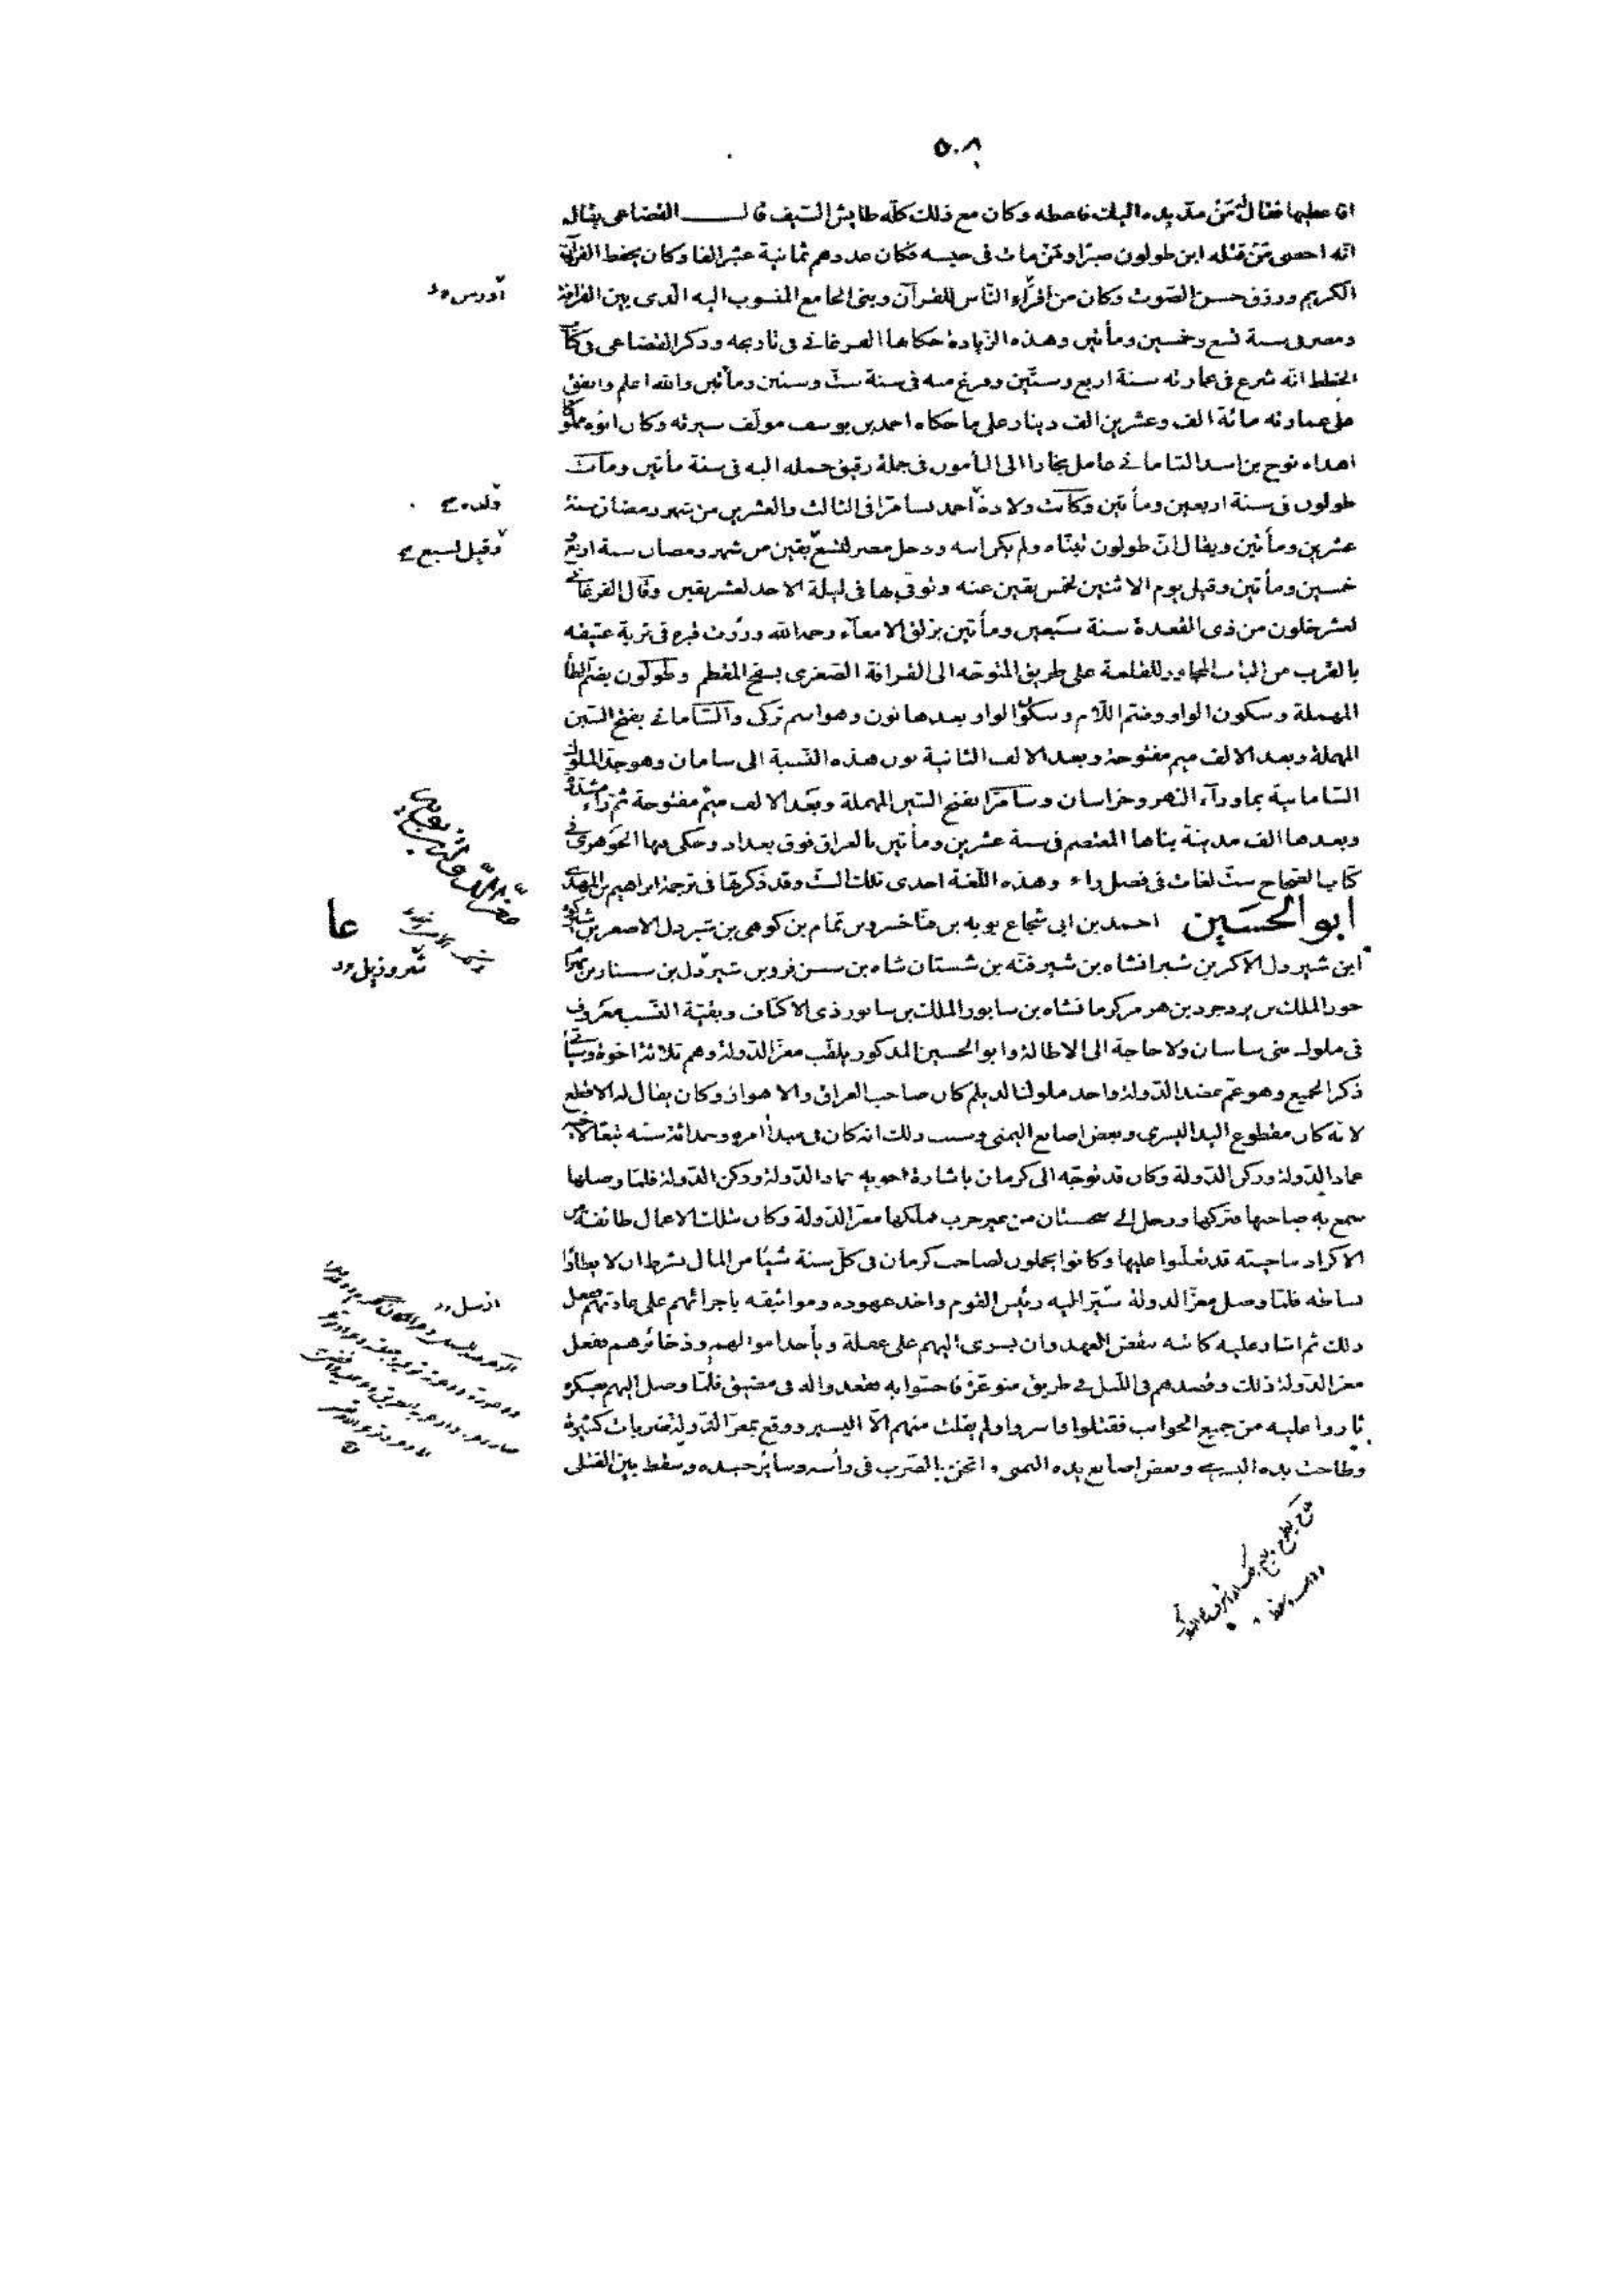 ٥٠٨
افاعطيها فقال له من مد يده اليك فاعطه وكان مع ذلك كله طايش السيف قال القضاعى يقال
انه احصى من قتله ابن طولون صبرا ومن مات فى حبسه فكان عددهم ثمانية عشر الفا وكان يحفظ القرآن
الكريم ورزق حسن الصوت وكان من ادرس الناس للقرآن وبنى الجامع المنسوب اليه الذى بين القاهرة
ومصر فى سنة تسع وخمسين ومأتين وهذه الزيادة حكاها الفرغانى فى تاريخه وذكر القضاعى فى كتاب
الخطط انه شرع فى عمارته سنة اربع وستين وفرغ منه فى سنة ست وستين ومأتين والله اعلم وانفق
على عمارته مائة الف وعشرين الف دينار على ما حكاه احمد بن يوسف مولف سيرته وكان ابوه مملوكا
اهداه نوح بن اسد السامانى عامل بخارا الى المأمون فى جملة رقيق حمله اليه فى سنة مأتين ومات
طولون فى سنة اربعين ومأتين وكانت ولادة احمد بسامرا فى الثالث والعشرين من شهر رمضان سنة
عشرين ومأتين ويقال ان طولون تبناه ولم يكن ابنه ودخل مصر لتسع بقين من شهر رمضان سنة اربع و
خمسين ومأتين وقيل يوم الاثنين لخمس بقين عنه وتوفى بها فى ليلة الاحد لعشر بقين وقال الفرغانى
لعشر خلون من ذى القعدة سنة سبعين ومأتين بزلق الامعآء رحمه الله وزرت قبره فى تربة عتيقه
بالقرب من الباب المجاور للقلعة على طريق المتوجه الى القرافة الصغرى بسفح المقطم وطولون بضم الطا
المهملة وسكون الواو وضم اللام وسكون الواو بعدها نون وهو اسم تركى والسامانى بفتح السين
المهملة وبعد الالف ميم مفتوحة وبعد الالف الثانية نون هذه النسبة الى سامان وهو جد الملوك
السامانية بماورآء النهر وخراسان وسامرا بفتح السين المهملة وبعد الالف ميم مفتوحة ثم راء مشددة
وبعدها الف مدينة بناها المعتصم فى سنة عشرين ومأتين بالعراق فوق بغداد وحكى فيها الجوهرى فى
كتاب الصحاح ست لغات فى فصل راء وهذه اللغة احدى تلك الست وقد ذكرتها فى ترجمة ابراهيم بن المهدى
ابو الحسين احمد بن ابى شجاع بويه بن فناخسرو بن تمام بن كوهى بن شيردل الاصغر بن شيركوه
ابن شيردل الاكبر بن شيرانشاه بن شيرفنه بن شستان شاه بن سسن فرو بن شيرذل بن سسناد بن بهرام
جور الملك بن يزدجرد بن هرمز كرمانشاه بن سابور الملك بن سابور ذى الاكتاف وبقية النسب معروف
فى ملوك بنى ساسان ولا حاجة الى الاطالة وابو الحسين المذكور يلقب معز الدولة وهم ثلاثة اخوة وسيأتى
ذكر الجميع وهو عم عضد الدولة واحد ملوك الديلم كان صاحب العراق والاهواز وكان يقال له الاقطع
لانه كان مقطوع اليد اليسرى وبعض اصابع اليمنى وسبب ذلك انه كان فى مبدأ امره وحداثة سنه تبعا لاخيه
عماد الدولة وركن الدولة وكان قد توجه الى كرمان باشارة اخويه عماد الدولة وركن الدولة فلما وصلها
سمع به صاحبها فتركها ورحل الى سجستان من غير حرب فملكها معز الدولة وكان بتلك الاعمال طائفة من
الاكراد قد تغلبوا عليها وكانوا يحملون لصاحب كرمان فى كل سنة شيئا من المال بشرط ان لا يطاؤا
بساطه فلما وصل معز الدولة سير اليه رئيس القوم واخذ عهوده ومواثيقه باجرائهم على عادتهم ففعل
ذلك ثم اشار عليه كاتبه بنقض العهد وان يسرى اليهم على غفلة وبأخذ اموالهم وذخائرهم ففعل
معز الدولة ذلك وقصدهم فى الليل فى طريق متوعرة فاحسوا به فقعدوا له فى مضيق فلما وصل اليهم بعسكره
ثاروا عليه من جميع الجوانب فقتلوا واسروا ولم يفلت منهم الا اليسير ووقع بمعز الدولة ضربات كثيرة
وطاحت يده اليسرى وبعض اصابع يده اليمنى واثخن بالضرب فى رأسه وسائر جسده وسقط بين القتلى
ادرس
ولده
وقيل لسبع
معز الدولة بن بويه
عا
ارسل